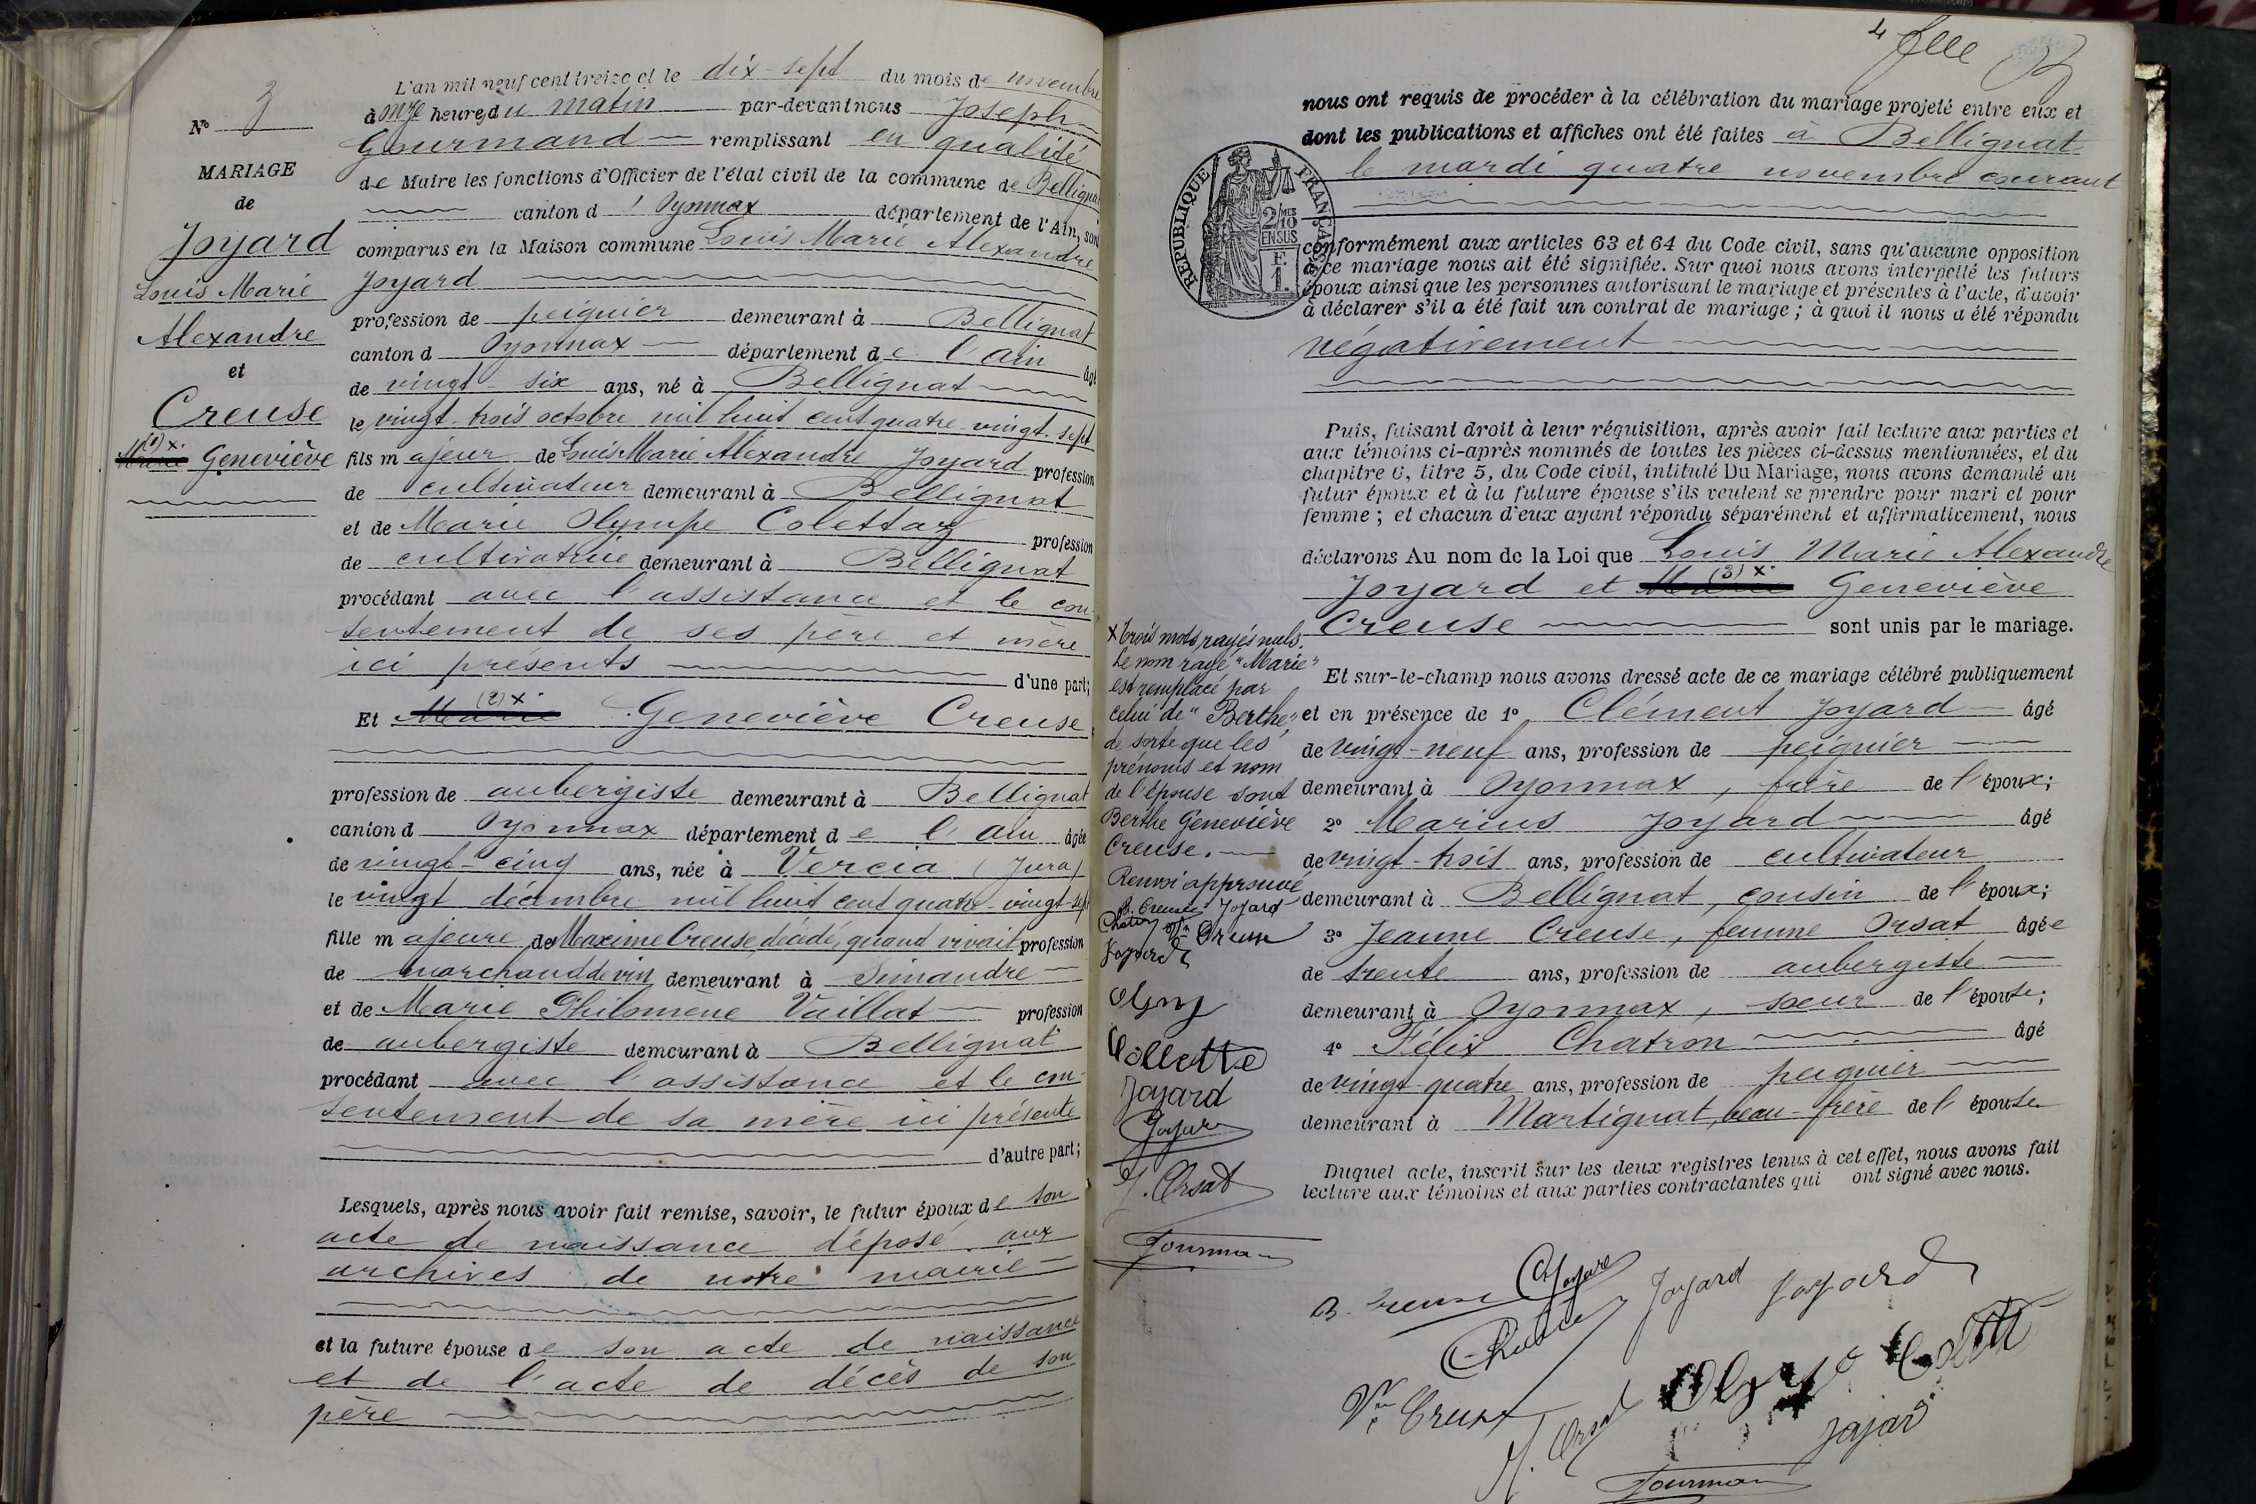 N° 3
MARIAGE
de
Joyard
Louis Marie
Alexandre
et
Creuse
(1) x
Marie Geneviève
L'an mil neuf cent treize et le dix-sept du mois de novembre
à onze heures du matin par-devant nous Joseph
Gourmand remplissant en qualité
de Maire les fonctions d'Officier de l'état civil de la commune de Bellignat
canton d'Oyonnax département de l'Ain, sont
comparus en la Maison commune Louis Marie Alexandre
Joyard
profession de peignier demeurant à Bellignat
canton d Oyonnax département de l'ain âgé
de vingt-six ans, né à Bellignat
le vingt-trois octobre mil huit cent quatre-vingt-sept
fils majeur de Louis Marie Alexandre Joyard profession
de cultivateur demeurant à Bellignat
et de Marie Olympe Colettaz profession
de cultivatrice demeurant à Bellignat
procédant avec l'assistance et le con-
sentement de ses père et mère
ici présents d'une part;
(2) x
Et Marie Geneviève Creuse
profession de aubergiste demeurant à Bellignat
canton d Oyonnax département de l'ain âgée
de vingt-cinq ans, née à Vercia (Jura)
le vingt décembre mil huit cent quatre-vingt-sept
fille majeure de Maxime Creuse, décédé, quand vivait profession
de marchand de vin demeurant à Simandre
et de Marie Philomène Vaillat profession
de aubergiste demeurant à Bellignat
procédant avec l'assistance et le con-
sentement de sa mère ici présente
d'autre part;
Lesquels, après nous avoir fait remise, savoir, le futur époux de son
acte de naissance déposé aux
archives de notre mairie
et la future épouse de son acte de naissance
et de l'acte de décès de son
père
4 flle
nous ont requis de procéder à la célébration du mariage projeté entre eux et
dont les publications et affiches ont été faites à Bellignat
le mardi quatre novembre courant
RÉPUBLIQUE FRANÇAISE
2/10MES
EN SUS
F.
1.
conformément aux articles 63 et 64 du Code civil, sans qu'aucune opposition
à ce mariage nous ait été signifiée. Sur quoi nous avons interpellé les futurs
époux ainsi que les personnes autorisant le mariage et présentes à l'acte, d'avoir
à déclarer s'il a été fait un contrat de mariage; à quoi il nous a été répondu
négativement
Puis, faisant droit à leur réquisition, après avoir fait lecture aux parties et
aux témoins ci-après nommés de toutes les pièces ci-dessus mentionnées, et du
chapitre 6, titre 5, du Code civil, intitulé Du Mariage, nous avons demandé au
futur époux et à la future épouse s'ils veulent se prendre pour mari et pour
femme; et chacun d'eux ayant répondu séparément et affirmativement, nous
déclarons Au nom de la Loi que Louis Marie Alexandre
(3) x
Joyard et Marie Geneviève
Creuse sont unis par le mariage.
Et sur-le-champ nous avons dressé acte de ce mariage célébré publiquement
et en présence de 1° Clément Joyard âgé
de vingt-neuf ans, profession de peignier
demeurant à Oyonnax, frère de l'époux;
2° Marius Joyard âgé
de vingt-trois ans, profession de cultivateur
demeurant à Bellignat, cousin de l'époux;
3° Jeanne Creuse, femme Orsat âgée
de trente ans, profession de aubergiste
demeurant à Oyonnax, sœur de l'épouse;
4° Félix Chatron âgé
de vingt-quatre ans, profession de peignier
demeurant à Martignat, beau-frère de l'épouse
Duquel acte, inscrit sur les deux registres tenus à cet effet, nous avons fait
lecture aux témoins et aux parties contractantes qui ont signé avec nous.
x trois mots rayés nuls.
Le nom rayé "Marie"
est remplacé par
celui de "Berthe"
de sorte que les
prénoms et nom
de l'épouse sont
Berthe Geneviève
Creuse.
Renvoi approuvé
B. Creuse Joyard
Creuse
Joyard
Collette
Joyard
J. Orsat
Gourman
B. Creuse Joyard Joyard
Vve Creuse
J. Orsat
Gourman